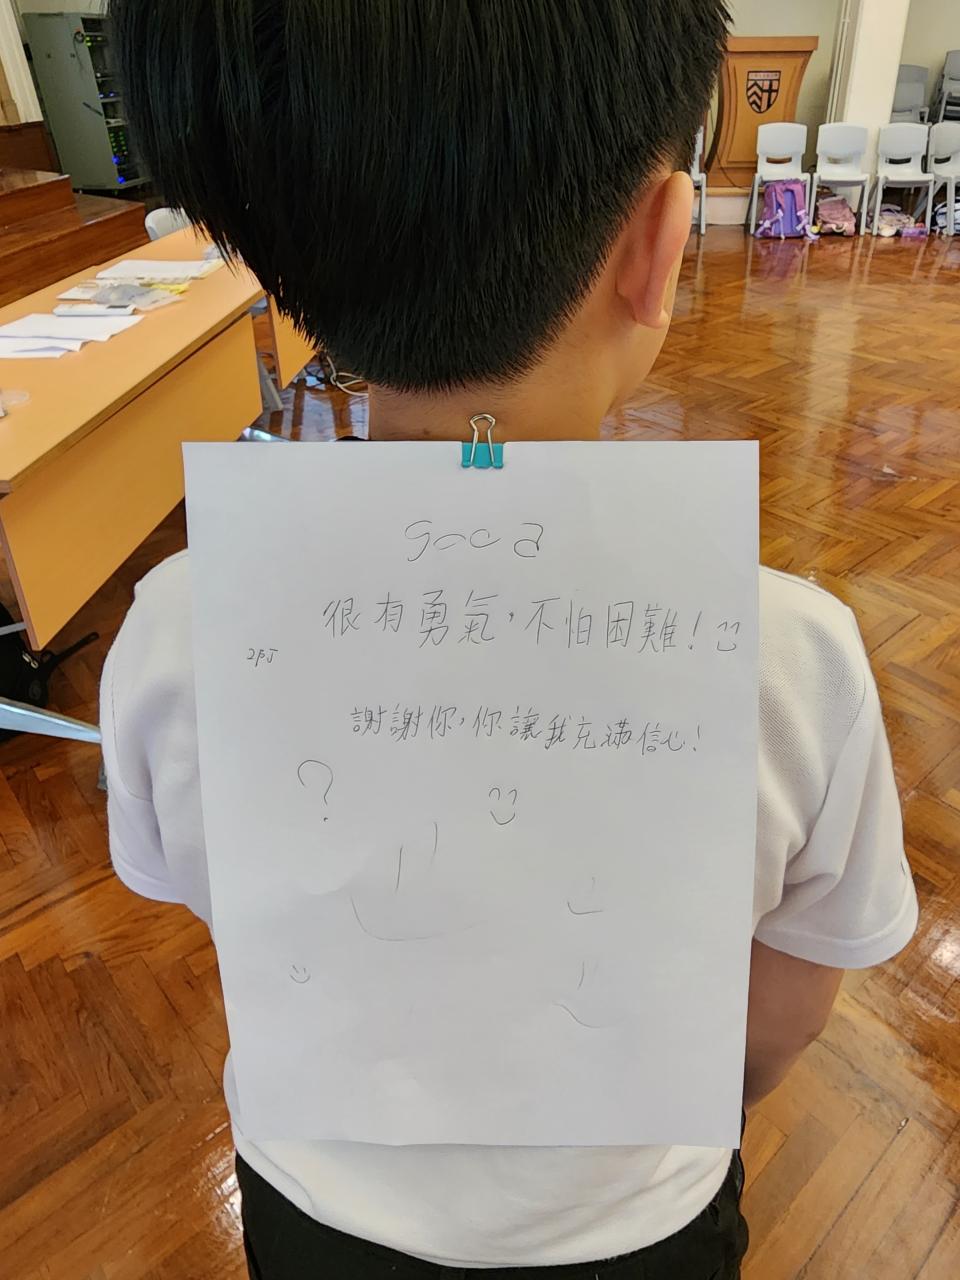 good
很有勇氣，不怕困難！
謝謝你，你讓我充滿信心！
?